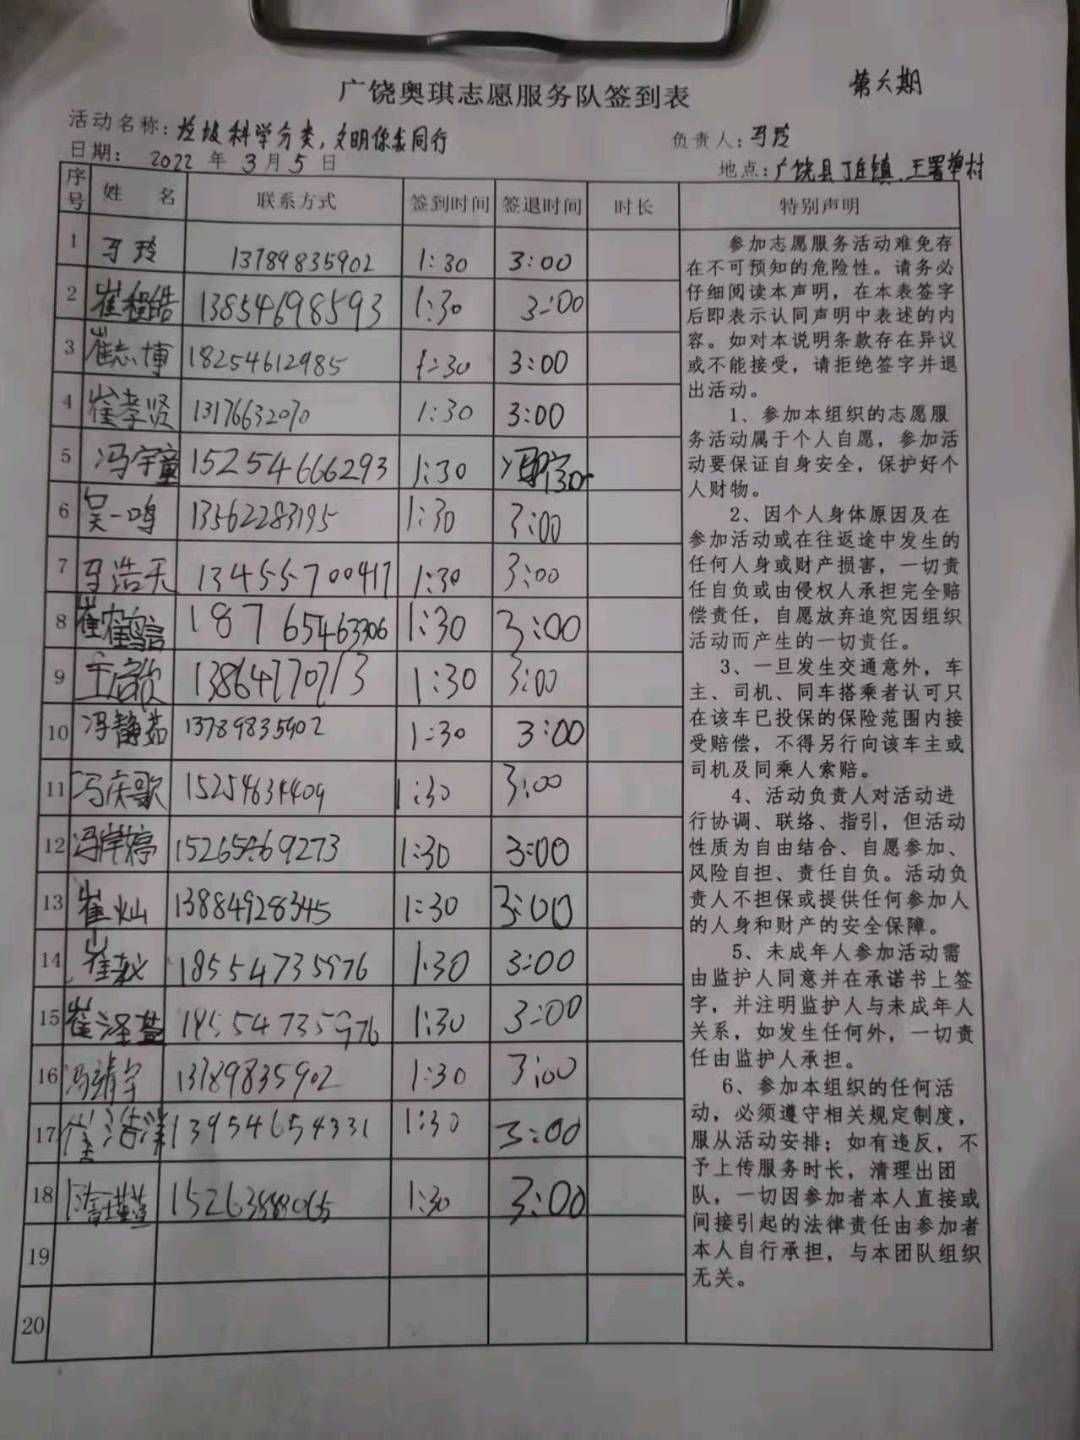 第六期
广饶奥琪志愿服务队签到表
活动名称：垃圾科学分类，文明你我同行
负责人：马玲
日期： 2022 年 3 月 5 日
地点：广饶县丁庄镇王署埠村
序号 姓 名 联系方式 签到时间 签退时间 时长 特别声明
1 马玲 13789835902 1:30 3:00
2 崔程皓 13854698593 1:30 3:00
3 崔志博 18254612985 1:30 3:00
4 崔孝贤 13176632070 1:30 3:00
5 冯宇童 15254666293 1:30
6 吴一鸣 13562283195 1:30 3:00
7 马浩天 13455700417 1:30 3:00
8 18765463306 1:30 3:00
9 王启欣 1:30 3:00
10 冯静茹 13789835902 1:30 3:00
11 冯庆歌 1:30 3:00
12 冯岸婷 1:30 3:00
13 崔灿 13884928345 1:30 3:00
14 崔 18554735976 1:30 3:00
15 崔泽 1:30 3:00
16 冯靖宇 13789835902 1:30 3:00
17 崔海洋 13954654331 1:30 3:00
18 1:30 3:00
19
20
参加志愿服务活动难免存
在不可预知的危险性。请务必
仔细阅读本声明，在本表签字
后即表示认同声明中表述的内
容。如对本说明条款存在异议
或不能接受，请拒绝签字并退
出活动。
1、参加本组织的志愿服
务活动属于个人自愿，参加活
动要保证自身安全，保护好个
人财物。
2、因个人身体原因及在
参加活动或在往返途中发生的
任何人身或财产损害，一切责
任自负或由侵权人承担完全赔
偿责任，自愿放弃追究因组织
活动而产生的一切责任。
3、一旦发生交通意外，车
主、司机、同车搭乘者认可只
在该车已投保的保险范围内接
受赔偿，不得另行向该车主或
司机及同乘人索赔。
4、活动负责人对活动进
行协调、联络、指引，但活动
性质为自由结合、自愿参加、
风险自担、责任自负。活动负
责人不担保或提供任何参加人
的人身和财产的安全保障。
5、未成年人参加活动需
由监护人同意并在承诺书上签
字，并注明监护人与未成年人
关系，如发生任何外，一切责
任由监护人承担。
6、参加本组织的任何活
动，必须遵守相关规定制度，
服从活动安排；如有违反，不
予上传服务时长，清理出团
队，一切因参加者本人直接或
间接引起的法律责任由参加者
本人自行承担，与本团队组织
无关。